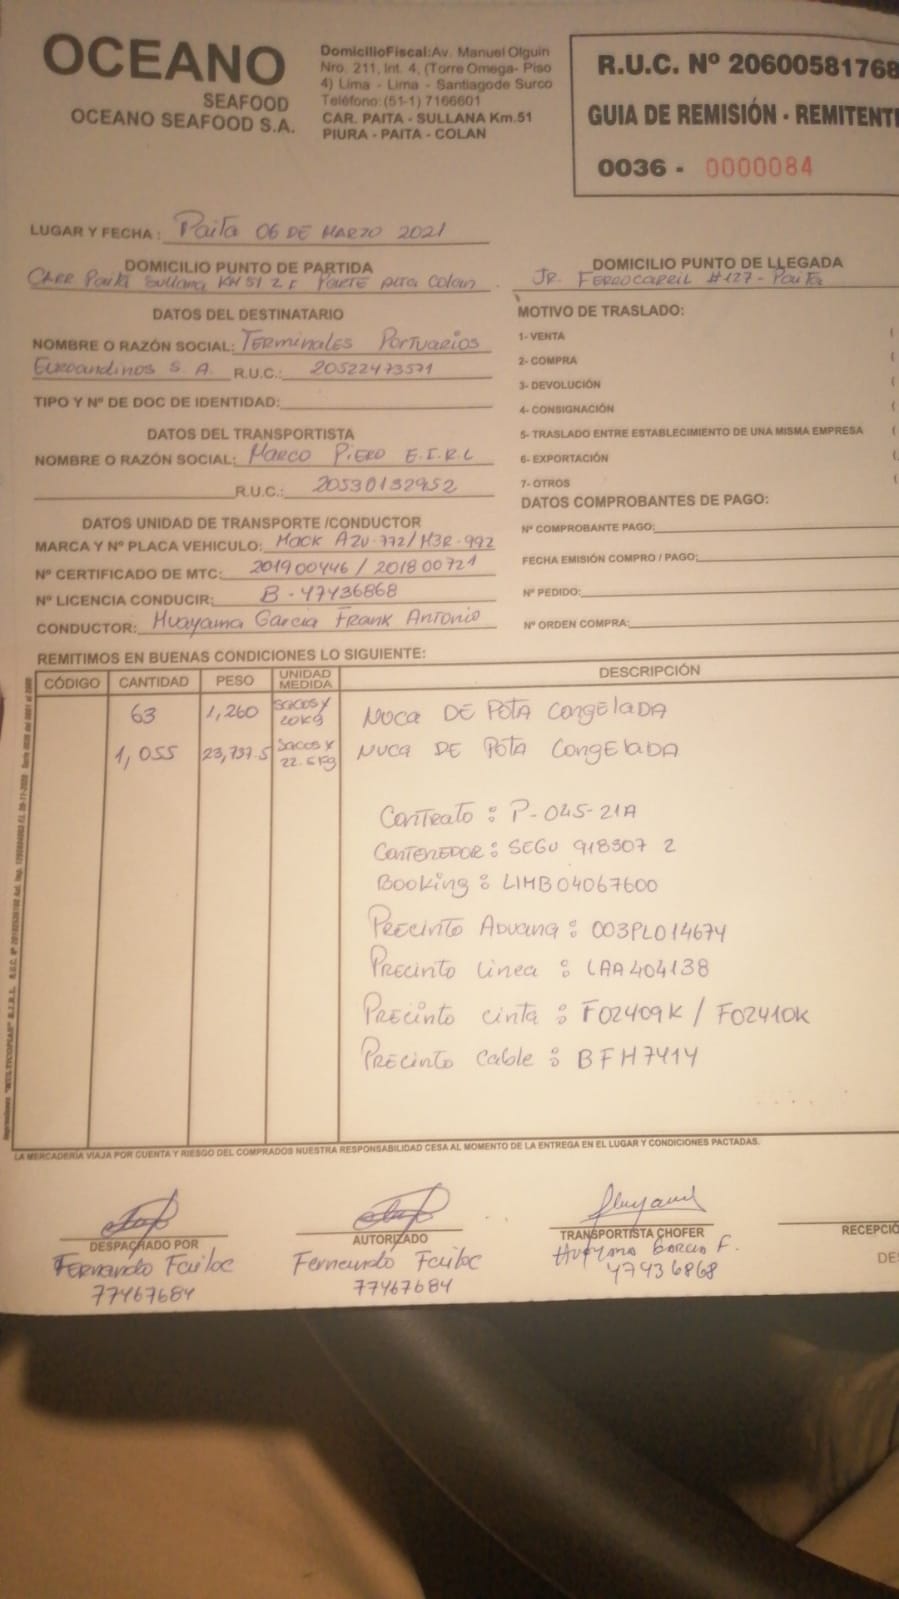 OCEANO
SEAFOOD
OCEANO SEAFOOD S.A.
DomicilioFiscal:Av. Manuel Olguin
Nro. 211, Int. 4, (Torre Omega- Piso
4) Lima - Lima - Santiagode Surco
Teléfono:(51-1) 7166601
CAR. PAITA - SULLANA Km.51
PIURA - PAITA - COLAN
R.U.C. Nº 20600581768
GUIA DE REMISIÓN - REMITENTE
0036 - 0000084
LUGAR Y FECHA : Paita 06 DE MARZO 2021
DOMICILIO PUNTO DE PARTIDA
Carr Paita Sullana KM 51 2 Parte Colan
DOMICILIO PUNTO DE LLEGADA
JR. FERROCARRIL #127 - Paita
DATOS DEL DESTINATARIO
NOMBRE O RAZÓN SOCIAL: Terminales Portuarios
Euroandinos S. A. R.U.C.: 20522473571
TIPO Y Nº DE DOC DE IDENTIDAD:
DATOS DEL TRANSPORTISTA
NOMBRE O RAZÓN SOCIAL: Marco Piero E.I.R.L
R.U.C.: 20530132952
DATOS UNIDAD DE TRANSPORTE /CONDUCTOR
MARCA Y Nº PLACA VEHICULO: Mack AZU-772/M3R-992
Nº CERTIFICADO DE MTC: 201900446 / 201800721
Nº LICENCIA CONDUCIR: B - 47436868
CONDUCTOR: Huayama Garcia Frank Antonio
MOTIVO DE TRASLADO:
1- VENTA (
2- COMPRA (
3- DEVOLUCIÓN (
4- CONSIGNACIÓN (
5- TRASLADO ENTRE ESTABLECIMIENTO DE UNA MISMA EMPRESA (
6- EXPORTACIÓN (
7- OTROS (
DATOS COMPROBANTES DE PAGO:
Nº COMPROBANTE PAGO:
FECHA EMISIÓN COMPRO / PAGO:
Nº PEDIDO:
Nº ORDEN COMPRA:
REMITIMOS EN BUENAS CONDICIONES LO SIGUIENTE:
CÓDIGO CANTIDAD PESO UNIDAD MEDIDA DESCRIPCIÓN
63 1,260 sacos x 20Kg NUCA DE POTA CONGELADA
1,055 23,737.5 sacos x 22.5Kg NUCA DE POTA CONGELADA
Contrato : P-045-21A
Contenedor : SEGU 918307 2
Booking : LIMB04067600
Precinto Aduana : 003PL014674
Precinto Linea : LAA404138
Precinto cinta : F02409K / F02410K
Precinto Cable : BFH7414
LA MERCADERÍA VIAJA POR CUENTA Y RIESGO DEL COMPRADOS NUESTRA RESPONSABILIDAD CESA AL MOMENTO DE LA ENTREGA EN EL LUGAR Y CONDICIONES PACTADAS.
DESPACHADO POR
Fernando Failoc
77467684
AUTORIZADO
Fernando Failoc
77467684
TRANSPORTISTA CHOFER
Huayama Garcia F.
47436868
RECEPCIÓ
DE